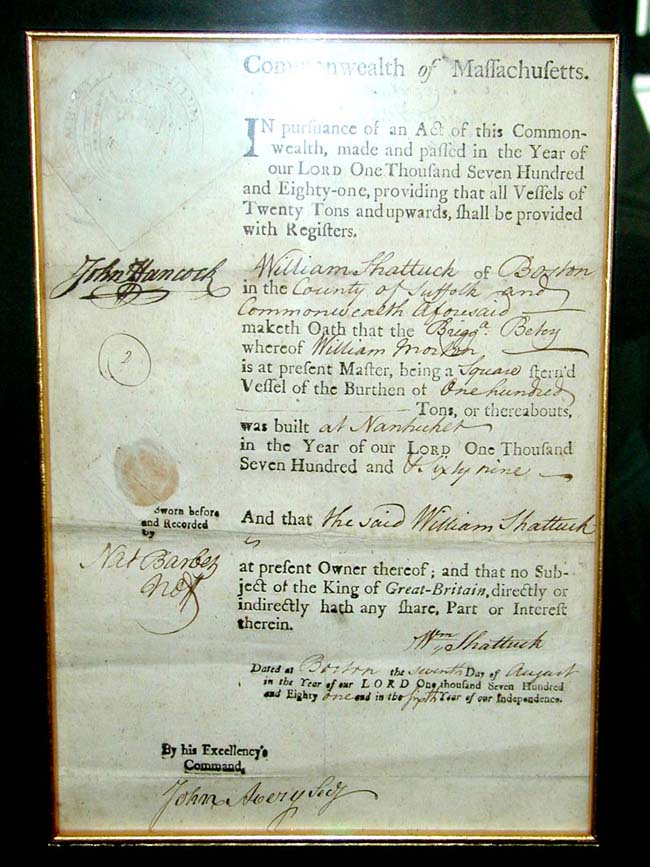 Commonwealth of Maſſachuſetts.
IN purſuance of an Act of this Common-
wealth, made and paſſed in the Year of
our LORD One Thouſand Seven Hundred
and Eighty-one, providing that all Veſſels of
Twenty Tons and upwards, ſhall be provided
with Regiſters.
John Hancock
William Shattuck of Boston
in the County of Suffolk and
Commonwealth Aforesaid
maketh Oath that the Brigga. Betsy
whereof William
is at preſent Maſter, being a Square ſtern'd
Veſſel of the Burthen of One hundred
Tons, or thereabouts,
was built at Nantucket
in the Year of our LORD One Thouſand
Seven Hundred and Sixty nine
2
Sworn before
and Recorded
by
Nat Barber
And that the said William Shattuck
at preſent Owner thereof; and that no Sub-
ject of the King of Great-Britain, directly or
indirectly hath any ſhare, Part or Intereſt
therein.
Wm Shattuck
Dated at Boston the seventh Day of August
in the Year of our LORD One thouſand Seven Hundred
and Eighty one and in the sixth Year of our Independence.
By his Excellency's
Command,
John Avery Secy